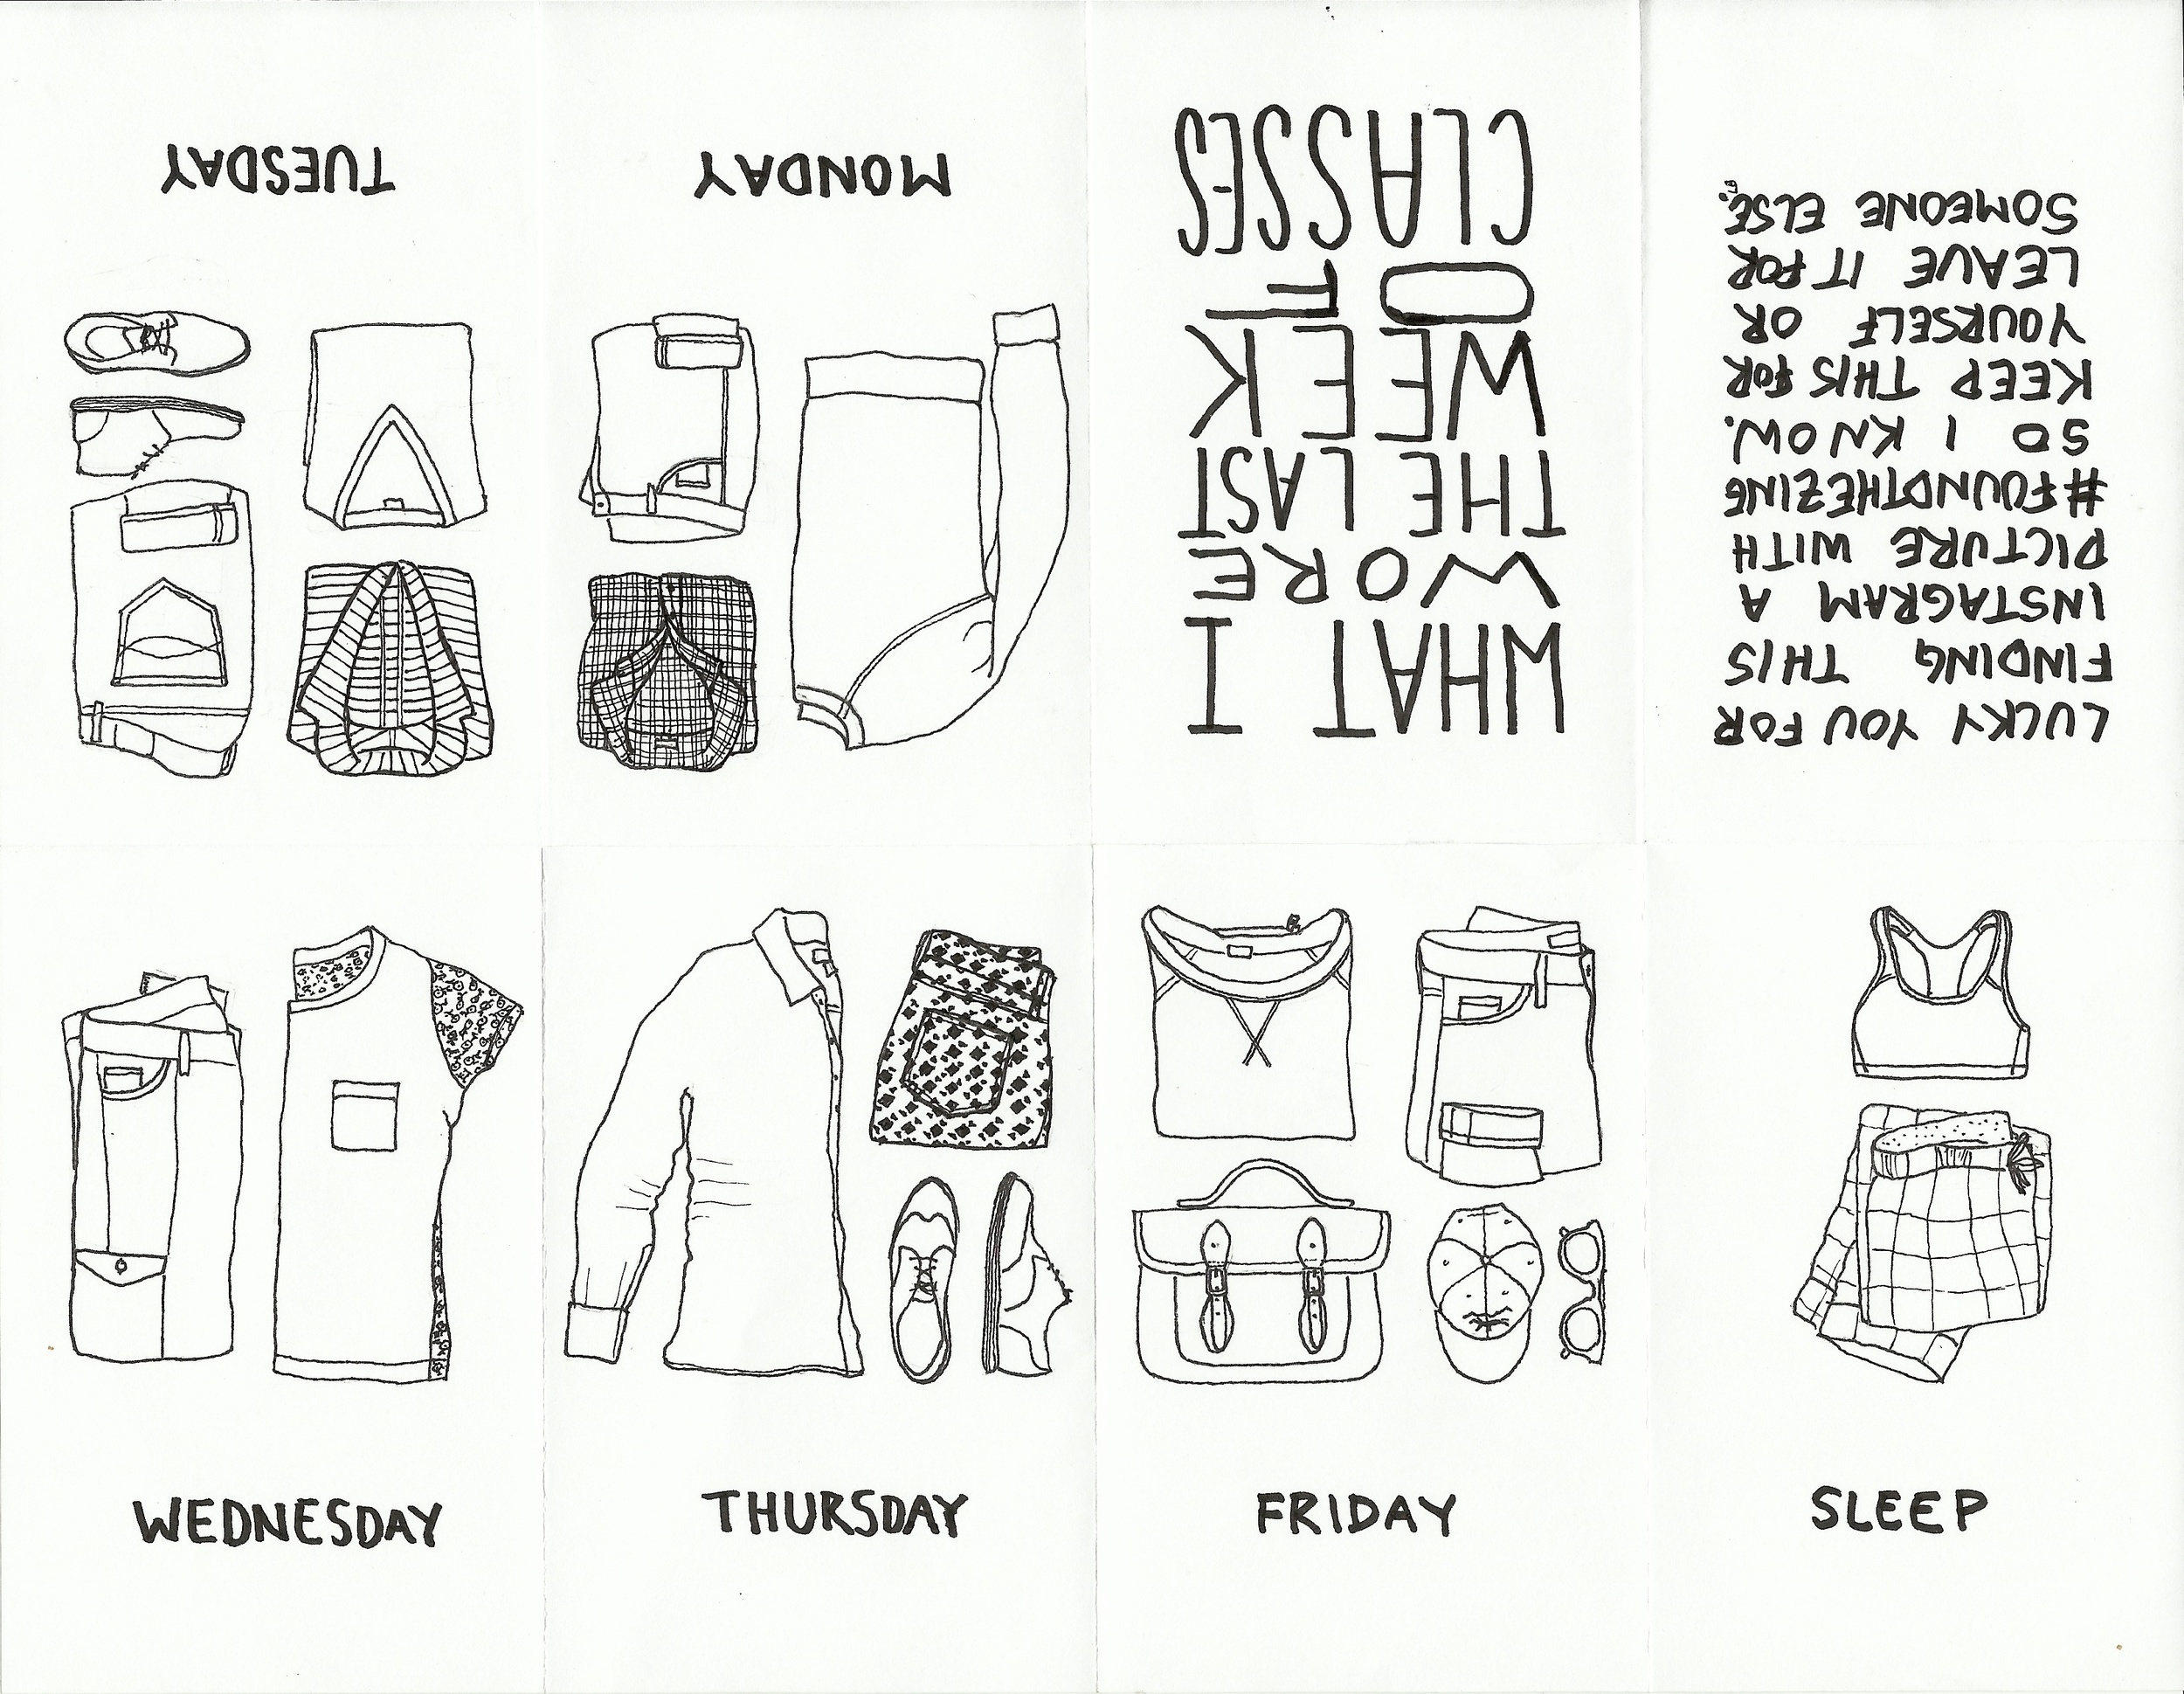 WHAT I
WORE
THE LAST
WEEK
OF
CLASSES
MONDAY
TUESDAY
WEDNESDAY
THURSDAY
FRIDAY
SLEEP
LUCKY YOU FOR
FINDING THIS
INSTAGRAM A
PICTURE WITH
#FOUNDTHEZINE
SO I KNOW.
KEEP THIS FOR
YOURSELF OR
LEAVE IT FOR
SOMEONE ELSE.